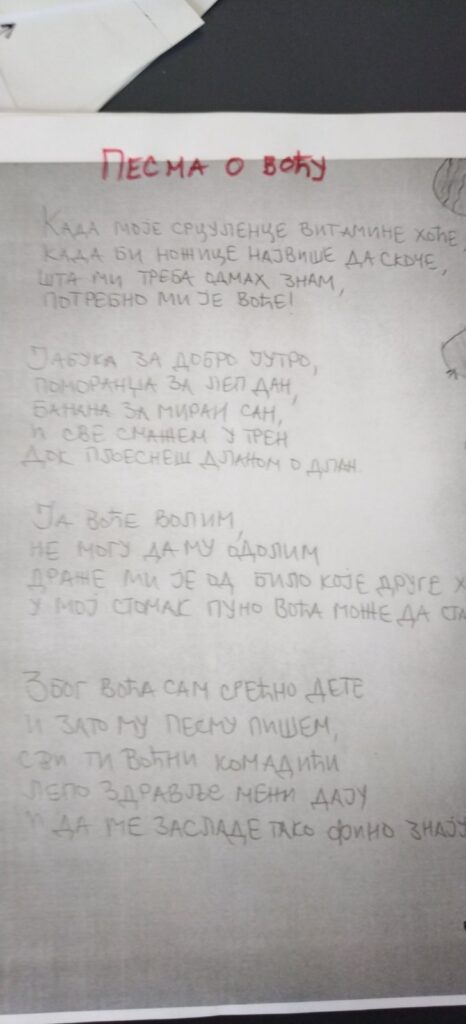 ПЕСМА О ВОЋУ
КАДА МОЈЕ СРЦУЛЕНЦЕ ВИТАМИНЕ ХОЋЕ,
КАДА БИ НОЖИЦЕ НАЈВИШЕ ДА СКОЧЕ,
ШТА МИ ТРЕБА ОДМАХ ЗНАМ,
ПОТРЕБНО МИ ЈЕ ВОЋЕ!
ЈАБУКА ЗА ДОБРО ЈУТРО,
ПОМОРАНЏА ЗА ЛЕП ДАН,
БАНАНА ЗА МИРАН САН,
И СВЕ СМАЖЕМ У ТРЕН
ДОК ПЉЕСНЕШ ДЛАНОМ О ДЛАН.
ЈА ВОЋЕ ВОЛИМ,
НЕ МОГУ ДА МУ ОДОЛИМ
ДРАЖЕ МИ ЈЕ ОД БИЛО КОЈЕ ДРУГЕ Х
У МОЈ СТОМАК ПУНО ВОЋА МОЖЕ ДА СТА
ЗБОГ ВОЋА САМ СРЕЋНО ДЕТЕ
И ЗАТО МУ ПЕСМУ ПИШЕМ,
СВИ ТИ ВОЋНИ КОМАДИЋИ
ЛЕПО ЗДРАВЉЕ МЕНИ ДАЈУ
И ДА МЕ ЗАСЛАДЕ ТАКО ФИНО ЗНАЈУ